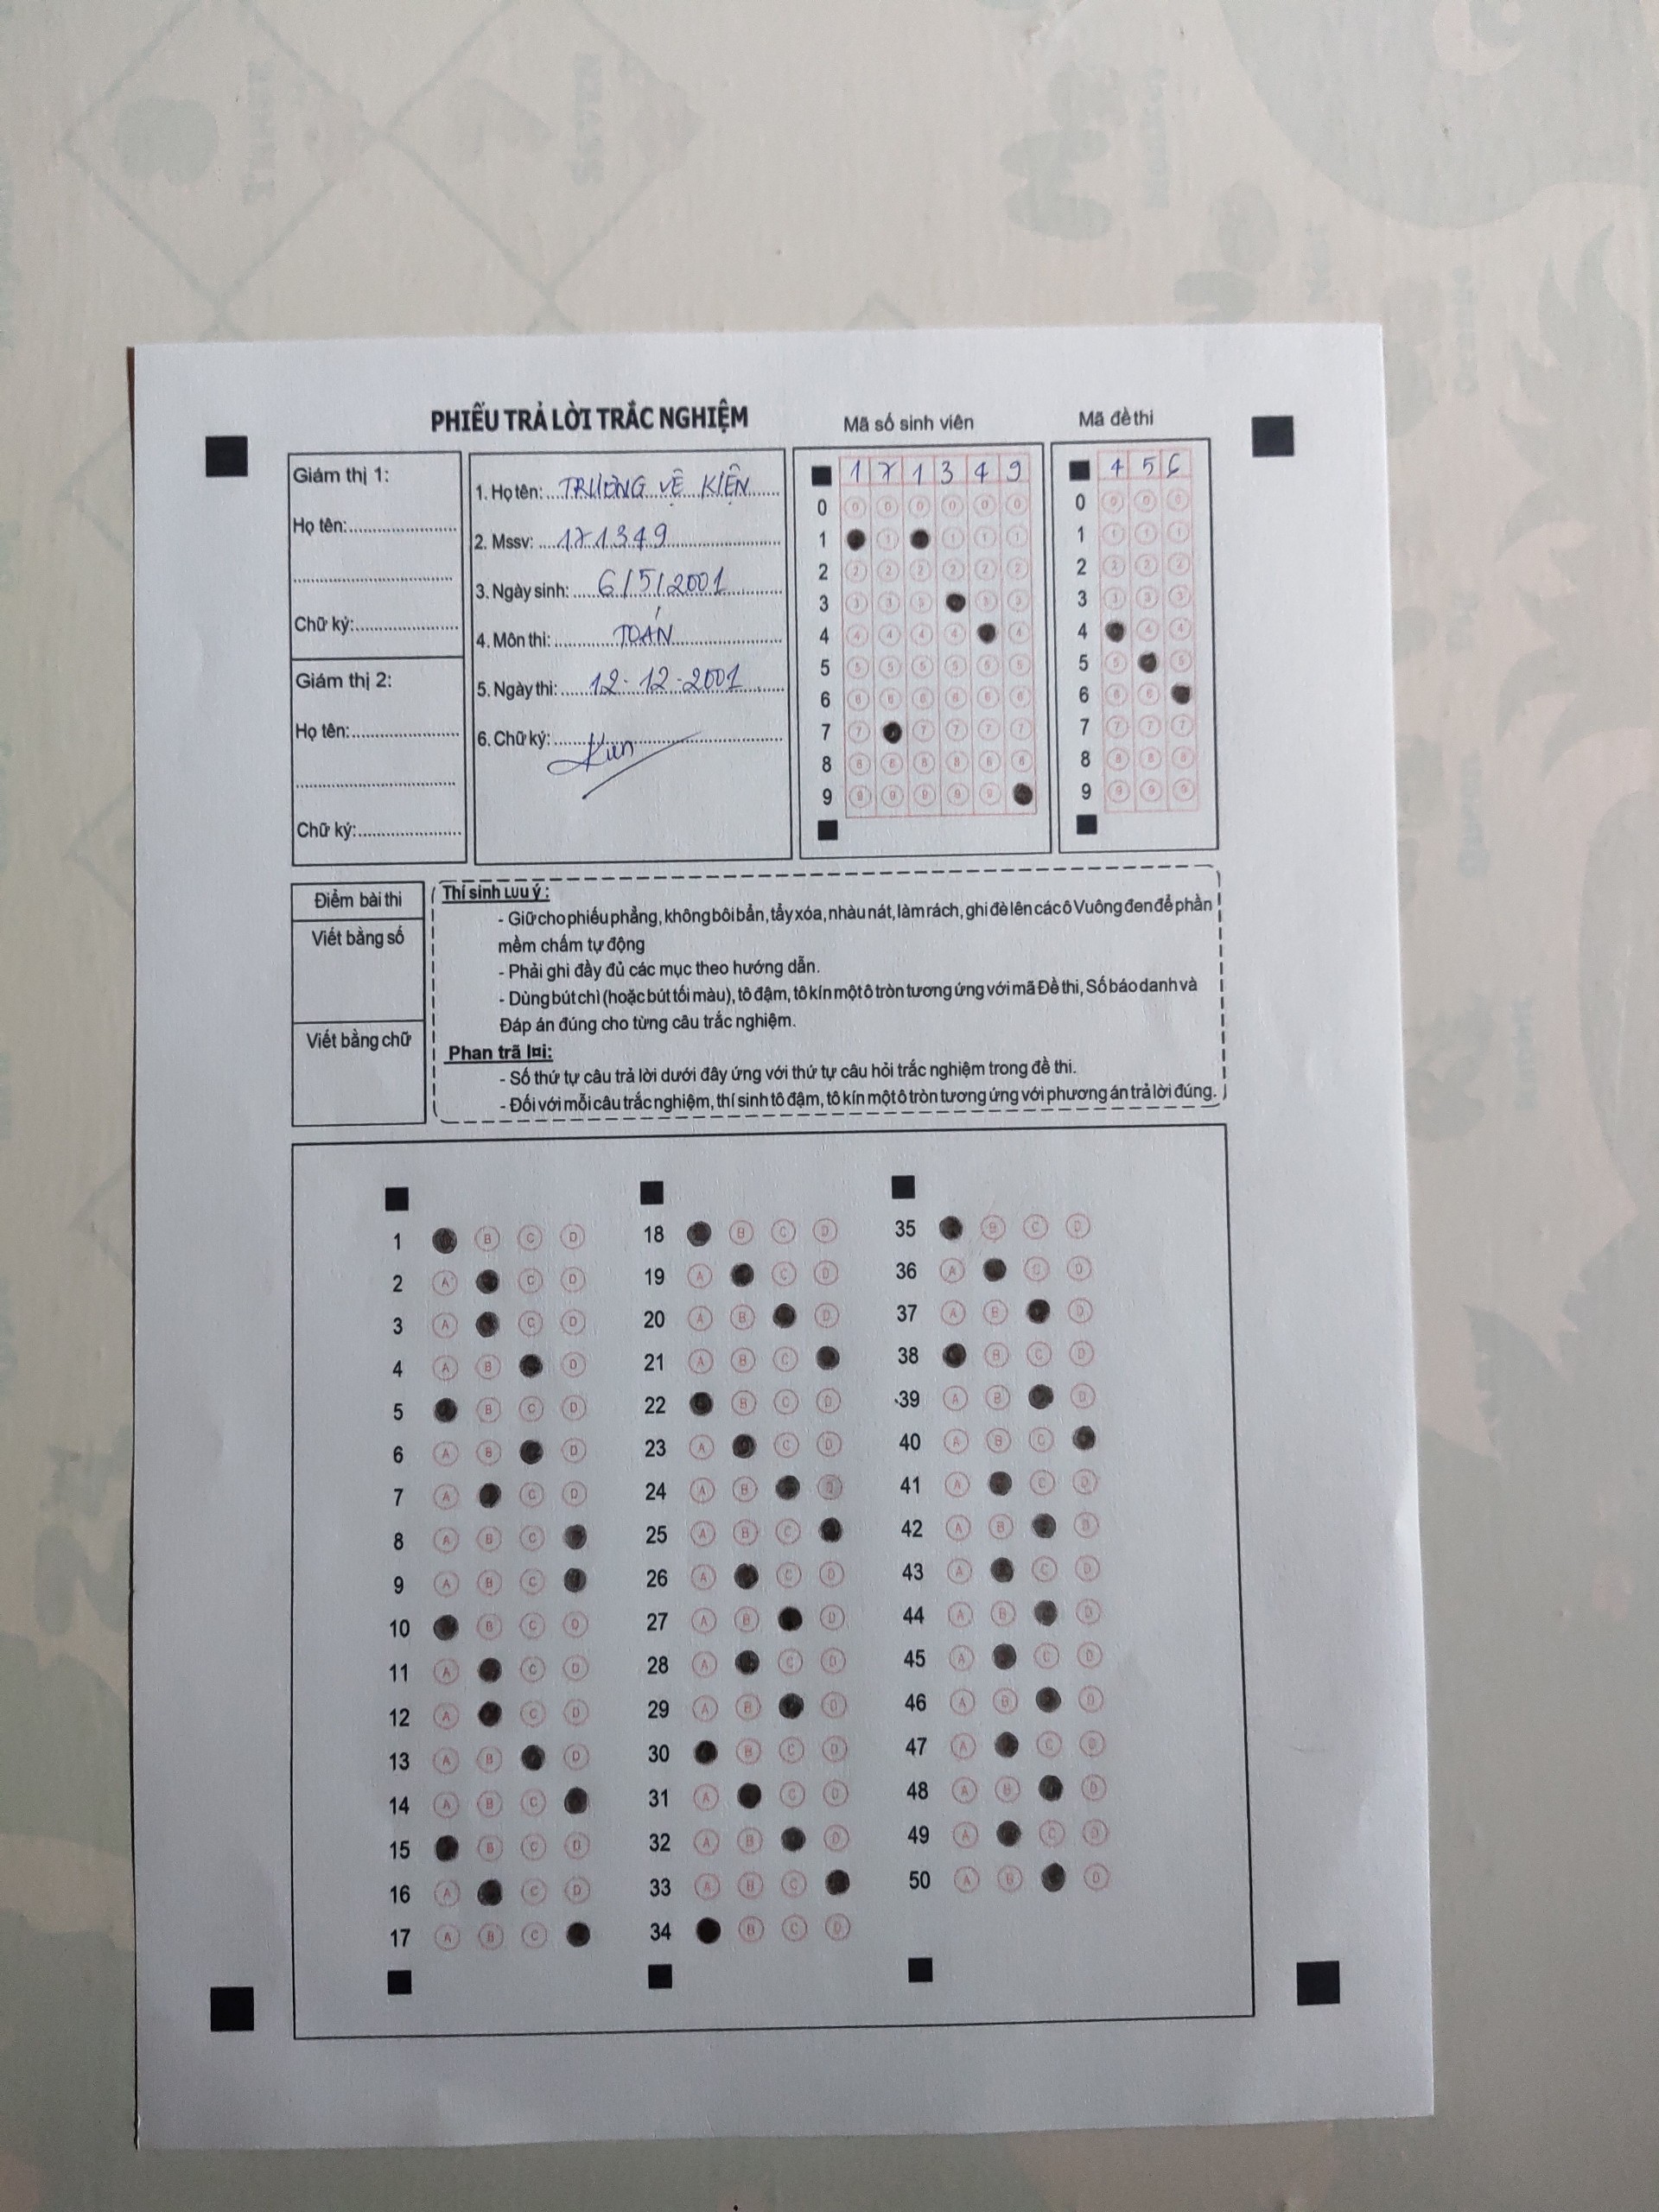 PHIẾU TRẢ LỜI TRẮC NGHIỆM
Giám thị 1:
Họ tên:
Chữ ký:
Giám thị 2:
Họ tên:
Chữ ký:
1. Họ tên: TRƯƠNG VỆ KIỆN
2. Mssv: 171349
3. Ngày sinh: 6/5/2001
4. Môn thi: TOÁN
5. Ngày thi: 12-12-2001
6. Chữ ký:
Mã số sinh viên
1 7 1 3 4 9
0 0 0 0 0 0 0
1 1 1 1 1
2 2 2 2 2 2 2
3 3 3 3 3 3
4 4 4 4 4 4
5 5 5 5 5 5 5
6 6 6 6 6 6 6
7 7 7 7 7 7
8 8 8 8 8 8 8
9 9 9 9 9 9
Mã đề thi
4 5 6
0 0 0 0
1 1 1 1
2 2 2 2
3 3 3 3
4 4 4
5 5 5
6 6 6
7 7 7 7
8 8 8 8
9 9 9 9
Điểm bài thi
Viết bằng số
Viết bằng chữ
Thí sinh Lưu ý :
- Giữ cho phiếu phẳng, không bôi bẩn, tẩy xóa, nhàu nát, làm rách, ghi đè lên các ô Vuông đen để phần
mềm chấm tự động
- Phải ghi đầy đủ các mục theo hướng dẫn.
- Dùng bút chì (hoặc bút tối màu), tô đậm, tô kín một ô tròn tương ứng với mã Đề thi, Số báo danh và
Đáp án đúng cho từng câu trắc nghiệm.
Phan trã l¤i:
- Số thứ tự câu trả lời dưới đây ứng với thứ tự câu hỏi trắc nghiệm trong đề thi.
- Đối với mỗi câu trắc nghiệm, thí sinh tô đậm, tô kín một ô tròn tương ứng với phương án trả lời đúng.
1 B C D
2 A C D
3 A C D
4 A B D
5 B C D
6 A B D
7 A C D
8 A B C
9 A B C
10 B C D
11 A C D
12 A C D
13 A B D
14 A B C
15 B C D
16 A C D
17 A B C
18 B C D
19 A C D
20 A B D
21 A B C
22 B C D
23 A C D
24 A B D
25 A B C
26 A C D
27 A B D
28 A C D
29 A B D
30 B C D
31 A C D
32 A B D
33 A B C
34 B C D
35 B C D
36 A C D
37 A B D
38 B C D
39 A B D
40 A B C
41 A C D
42 A B D
43 A C D
44 A B D
45 A C D
46 A B D
47 A C D
48 A B D
49 A C D
50 A B D